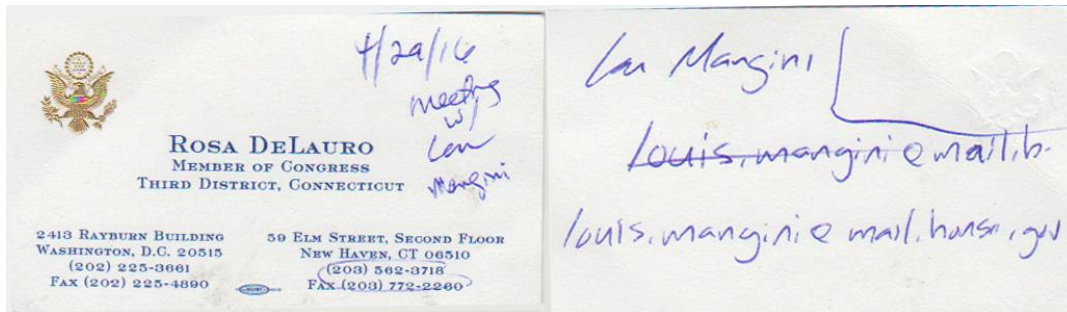 4/29/16
meeting
w/
Lou
Mangini
ROSA DELAURO
MEMBER OF CONGRESS
THIRD DISTRICT, CONNECTICUT
2413 RAYBURN BUILDING
WASHINGTON, D.C. 20515
(202) 225-3661
FAX (202) 225-4890
59 ELM STREET, SECOND FLOOR
NEW HAVEN, CT 06510
(203) 562-3718
FAX (203) 772-2260
Lou Mangini
louis.mangini@mail.h.
louis.mangini@mail.house.gov